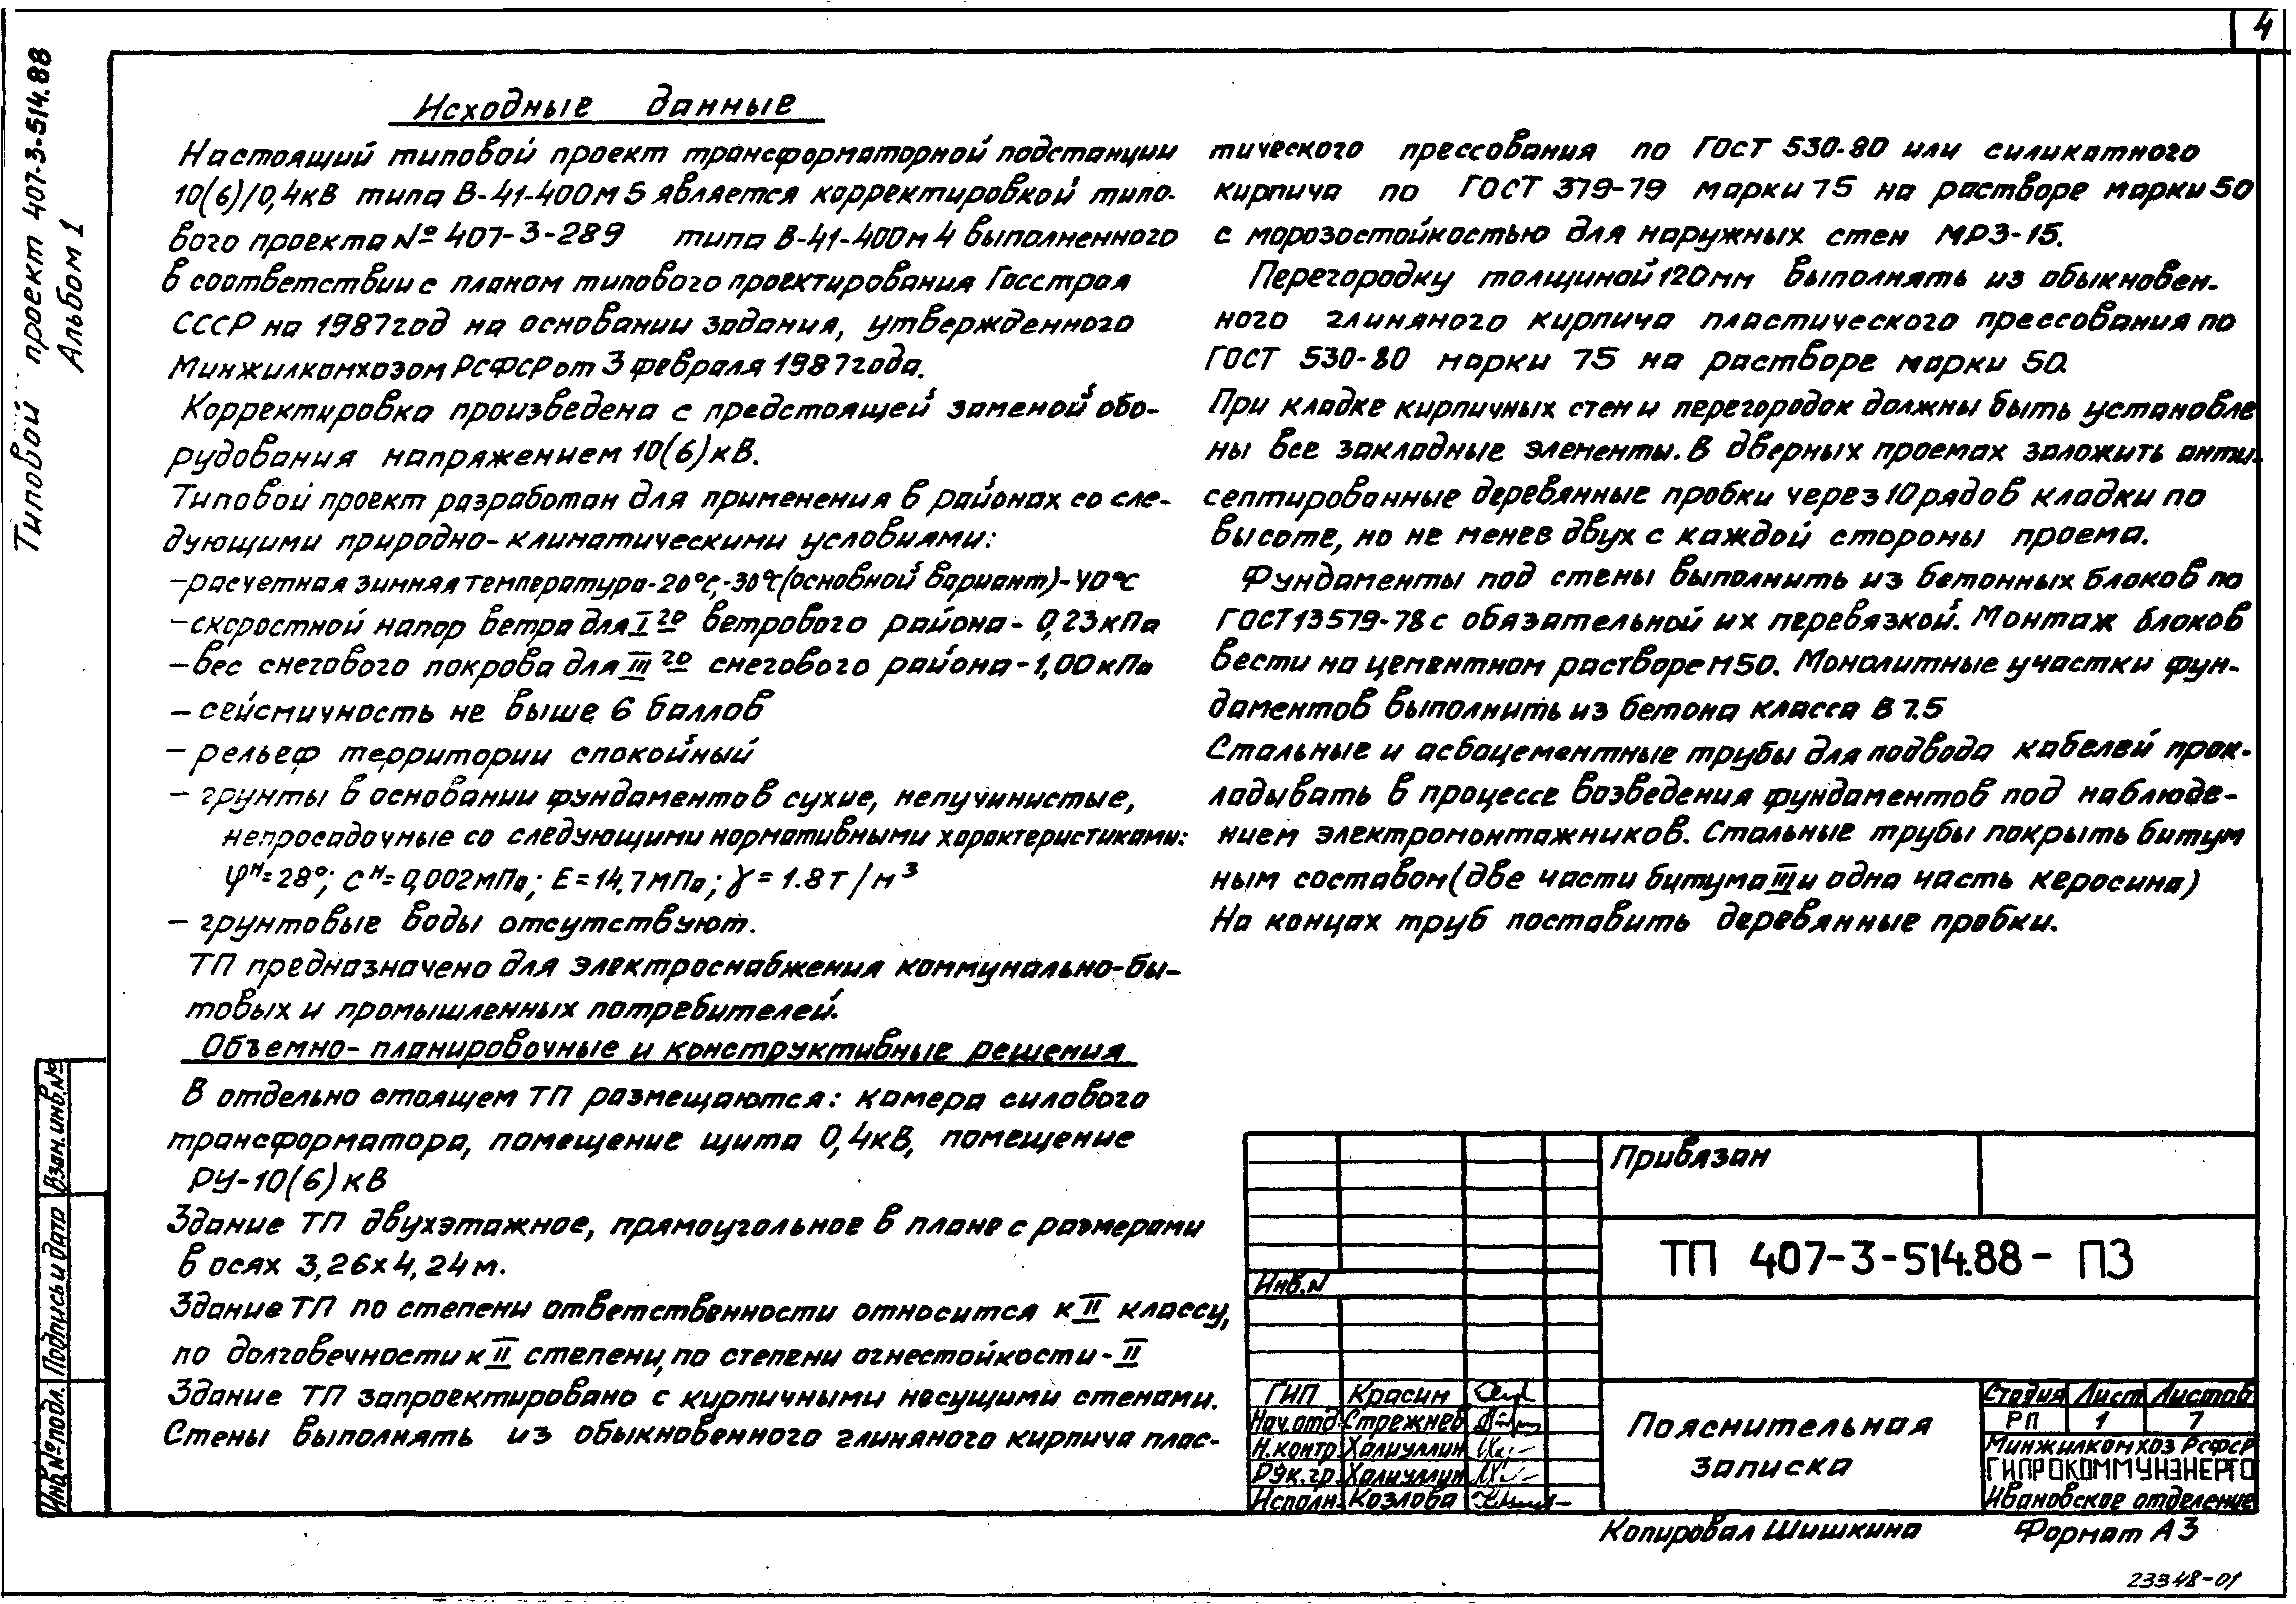 4
Типовой проект 407-3-514.88
Альбом I
Исходные данные
Настоящий типовой проект трансформаторной подстанции
10(6)/0,4кВ типа В-41-400м5 является корректировкой типо-
вого проекта № 407-3-289 типа В-41-400м4 выполненного
в соответствии с планом типового проектирования Госстроя
СССР на 1987год на основании задания, утвержденного
Минжилкомхозом РСФСР от 3 февраля 1987года.
Корректировка произведена с предстоящей заменой обо-
рудования напряжением 10(6)кВ.
Типовой проект разработан для применения в районах со сле-
дующими природно-климатическими условиями:
-расчетная зимняя температура-20°С,-30°С(основной вариант)-40°С
-скоростной напор ветра для I го ветрового района - 0,23кПа
-вес снегового покрова для III го снегового района -1,00кПа
- сейсмичность не выше 6 баллов
- рельеф территории спокойный
- грунты в основании фундаментов сухие, непучинистые,
непросадочные со следующими нормативными характеристиками:
φн=28°; сн=0,002мПа; Е=14,7мПа; γ=1.8т/м3
- грунтовые воды отсутствуют.
ТП предназначено для электроснабжения коммунально-бы-
товых и промышленных потребителей.
Объемно-планировочные и конструктивные решения
В отдельно стоящем ТП размещаются: камера силового
трансформатора, помещение щита 0,4кВ, помещение
РУ-10(6)кВ
Здание ТП двухэтажное, прямоугольное в плане с размерами
в осях 3,26х4,24м.
Здание ТП по степени ответственности относится к II классу,
по долговечности к II степени, по степени огнестойкости-II
Здание ТП запроектировано с кирпичными несущими стенами.
Стены выполнять из обыкновенного глиняного кирпича плас-
тического прессования по ГОСТ 530-80 или силикатного
кирпича по ГОСТ 379-79 марки 75 на растворе марки 50
с морозостойкостью для наружных стен МРЗ-15.
Перегородку толщиной 120мм выполнять из обыкновен-
ного глиняного кирпича пластического прессования по
ГОСТ 530-80 марки 75 на растворе марки 50.
При кладке кирпичных стен и перегородок должны быть установле
ны все закладные элементы. В дверных проемах заложить анти-
септированные деревянные пробки через 10 рядов кладки по
высоте, но не менее двух с каждой стороны проема.
Фундаменты под стены выполнить из бетонных блоков по
ГОСТ 13579-78 с обязательной их перевязкой. Монтаж блоков
вести на цементном растворе М50. Монолитные участки фун-
даментов выполнить из бетона класса В 7.5
Стальные и асбоцементные трубы для подвода кабелей прок-
ладывать в процессе возведения фундаментов под наблюде-
нием электромонтажников. Стальные трубы покрыть битум
ным составом (две части битума III и одна часть керосина)
На концах труб поставить деревянные пробки.
Привязан
Инв.N
ТП 407-3-514.88- ПЗ
ГИП Красин
Нач.отд. Стрежнев
Н.контр. Халиуллин
Рук.гр. Халиуллин
Исполн. Козлова
Пояснительная
записка
Стадия Лист Листов
РП 1 7
Минжилкомхоз РСФСР
ГИПРОКОММУНЭНЕРГО
Ивановское отделение
Взам.инв.№
Подпись и дата
Инв.№подл.
Копировал Шишкина
Формат А3
23348-01